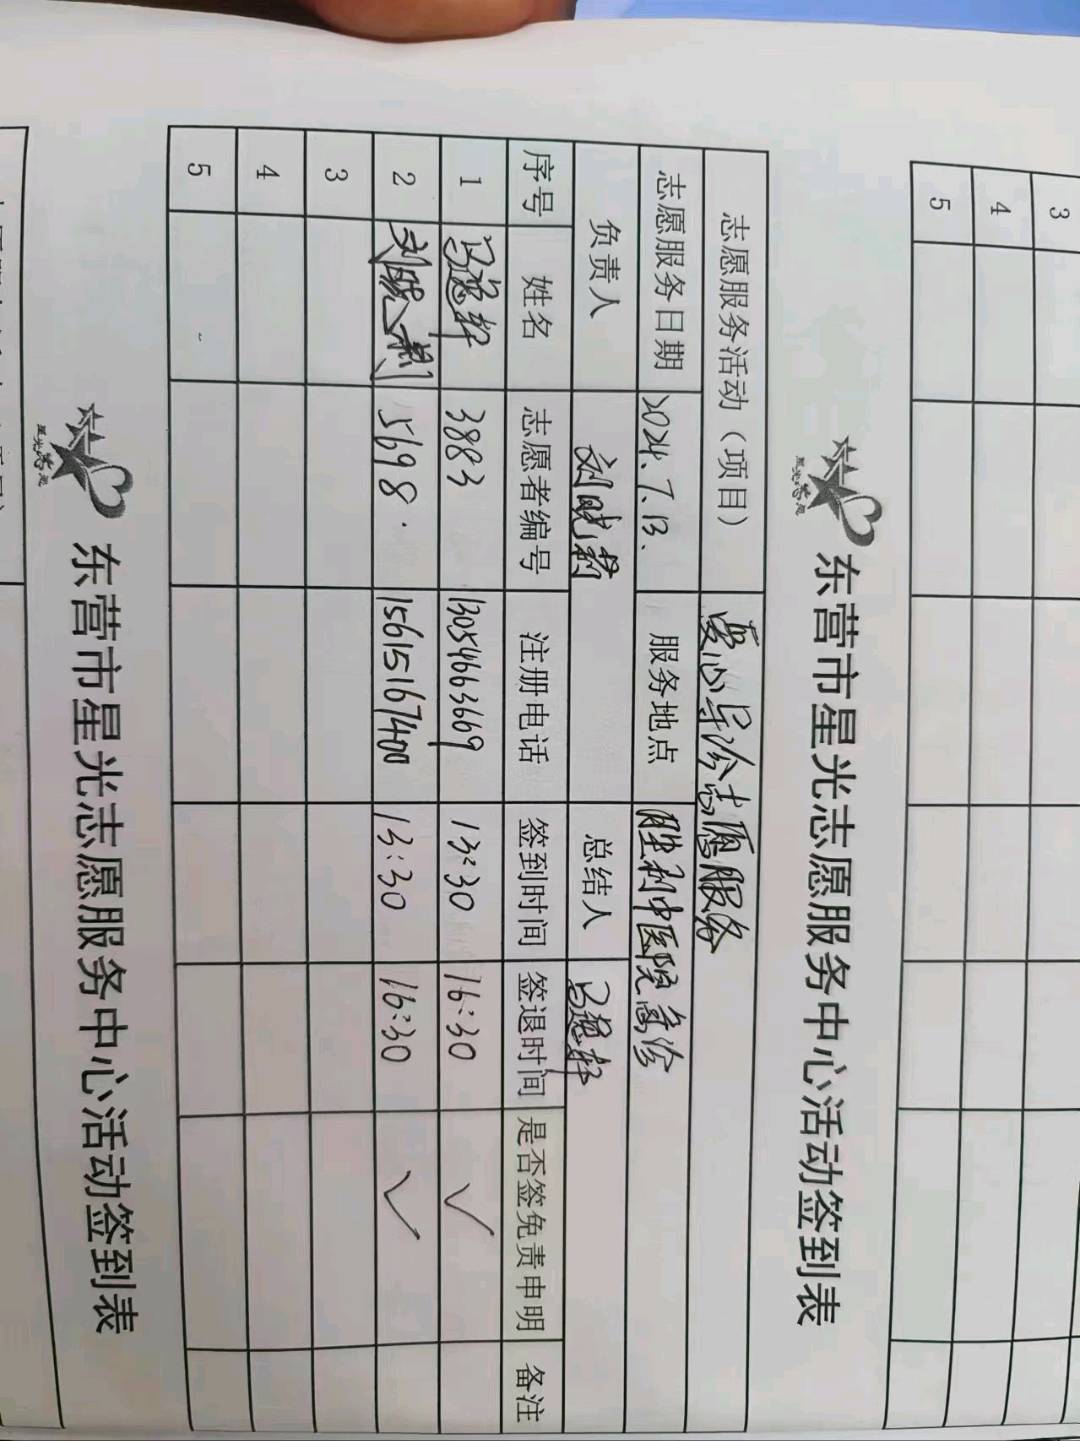 3
4
5
东营市星光志愿服务中心活动签到表
志愿服务活动（项目） 爱心导诊志愿服务
志愿服务日期 2024.7.13. 服务地点 胜利中医院急诊
负责人 刘晓莉 总结人
序号 姓名 志愿者编号 注册电话 签到时间 签退时间 是否签免责申明 备注
1 3883 13054663669 13:30 16:30 ✓
2 刘晓莉 5698. 15615167400 13:30 16:30 ✓
3
4
5
东营市星光志愿服务中心活动签到表